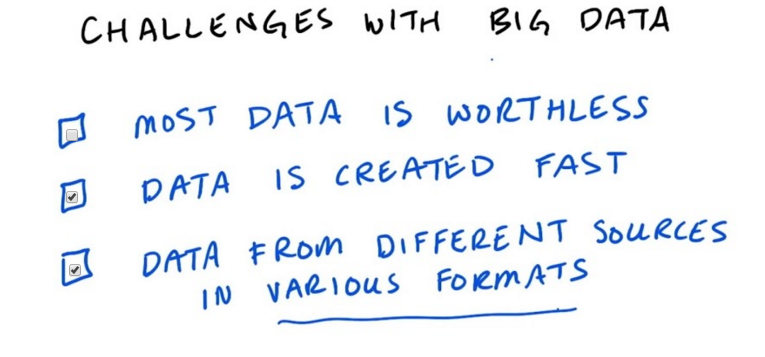 CHALLENGES WITH BIG DATA
MOST DATA IS WORTHLESS
DATA IS CREATED FAST
DATA FROM DIFFERENT SOURCES
IN VARIOUS FORMATS